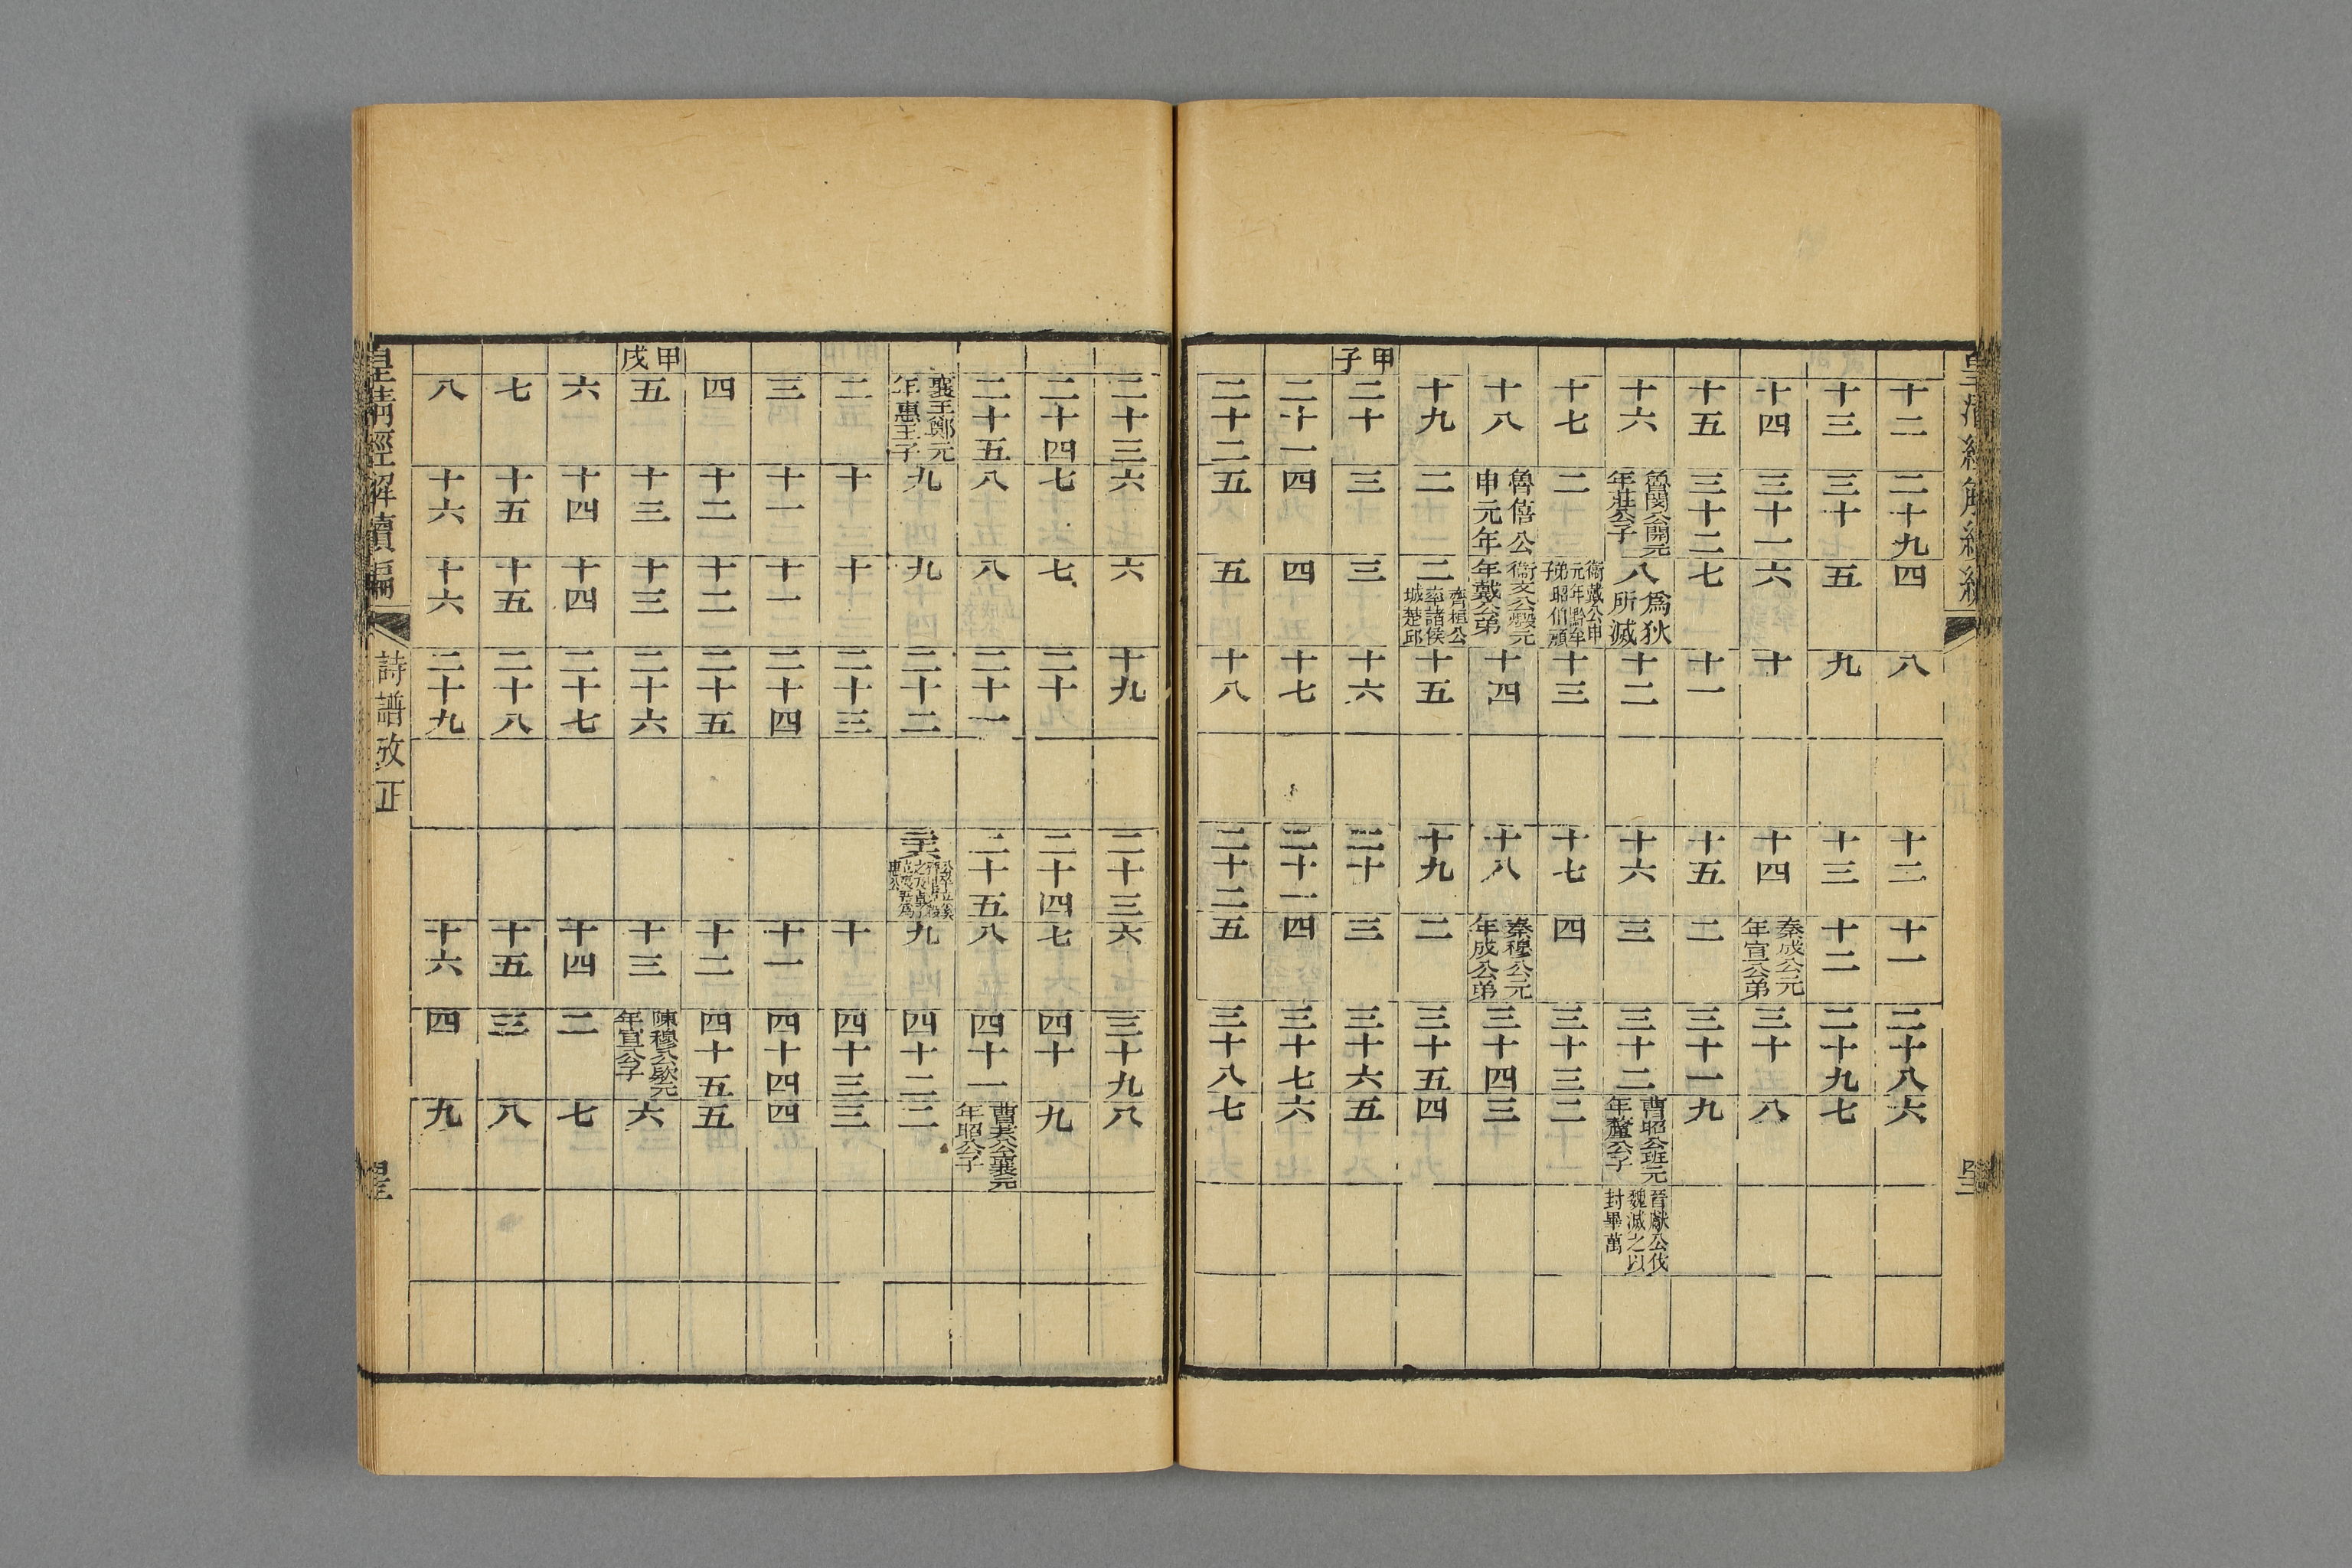 皇清經解續編
十二 二十九 四 八 十二 十一 二十八 六
十三 三十 五 九 十三 十二 二十九 七
十四 三十一 六 十 十四 秦成公元年宣公弟 三十 八
十五 三十二 七 十一 十五 二 三十一 九
十六 魯閔公開元年莊公子 八爲狄所滅 十二 十六 三 三十二 曹昭公班元年釐公子 晉獻公伐魏滅之以封畢萬
十七 二 衞戴公申元年黔牟弟昭伯頑子 十三 十七 四 三十三 二
十八 魯僖公申元年 衞文公燬元年戴公弟 十四 十八 秦穆公元年成公弟 三十四 三
十九 二 二齊桓公率諸侯城楚邱 十五 十九 二 三十五 四
甲子 二十 三 三 十六 二十 三 三十六 五
二十一 四 四 十七 二十一 四 三十七 六
二十二 五 五 十八 二十二 五 三十八 七
二十三 六 六 十九 二十三 六 三十九 八
二十四 七 七 二十 二十四 七 四十 九
二十五 八 八 二十一 二十五 八 四十一 曹共公襄元年昭公子
襄王鄭元年惠王子 九 九 二十二 二十六 九 四十二 二
二 十 十 二十三 十 四十三 三
三 十一 十一 二十四 十一 四十四 四
四 十二 十二 二十五 十二 四十五 五
甲戌 五 十三 十三 二十六 十三 陳穆公款元年宣公子 六
六 十四 十四 二十七 十四 二 七
七 十五 十五 二十八 十五 三 八
八 十六 十六 二十九 十六 四 九
皇淸經解續編
詩譜攷正